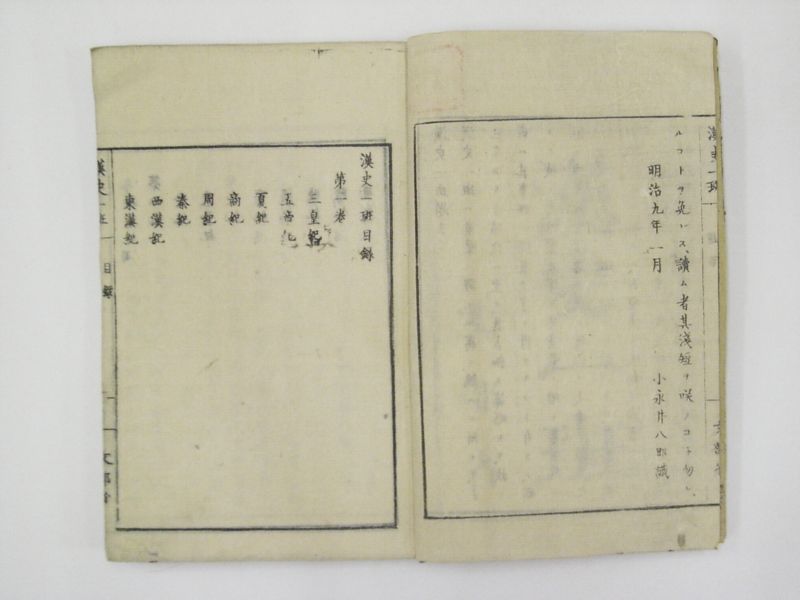 漢史一班
ルコトヲ免レス、讀ム者其淺短ヲ咲ノコト勿レ、
明治九年一月 小永井八郎識
漢史一班目録
第一卷
三皇紀
五帝紀
夏紀
商紀
周紀
秦紀
西漢紀
東漢紀
漢史一班 目録 文部省